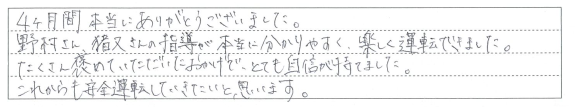 4ヶ月間本当にありがとうございました。
野村さん、猪又さんの指導が本当に分かりやすく、楽しく運転できました。
たくさん褒めていただいたおかげで、とても自信が持てました。
これからも安全運転していきたいと思います。